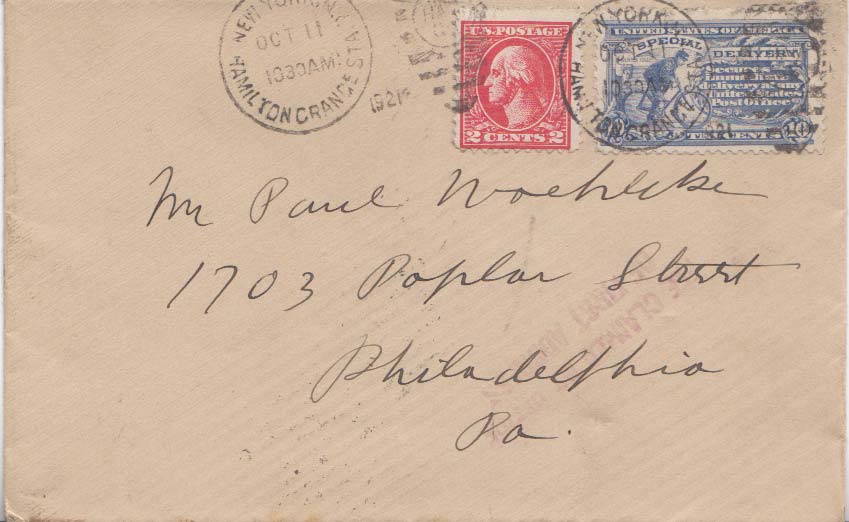 NEW YORK, N.Y.
OCT 11
1030AM
1921
HAMILTON GRANGE STA.
U.S. POSTAGE
2 CENTS 2
NEW YORK
HAMILTON GRANGE STA
1921
UNITED STATES OF AMERICA
SPECIAL DELIVERY
Secures
immediate
delivery at any
United States
Post Office
TEN CENTS
Mr Paul Woehlcke
1703 Poplar Street
Philadelphia
Pa.